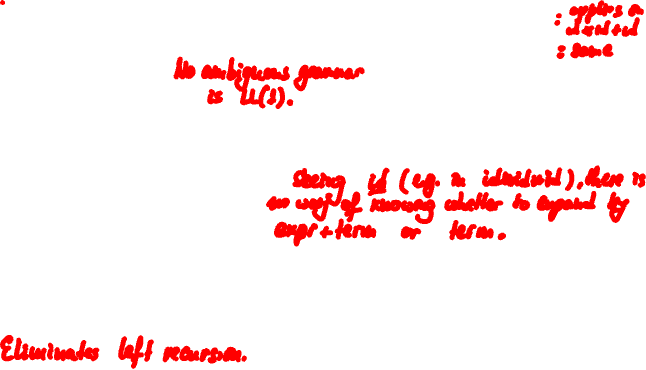 : applies on
id x id + id
: same
No ambiguous grammar
is LL(1).
Seeing id (e.g. in id+id×id), there is
no way of knowing whether to expand by
expr + term or term.
Eliminates left recursion.